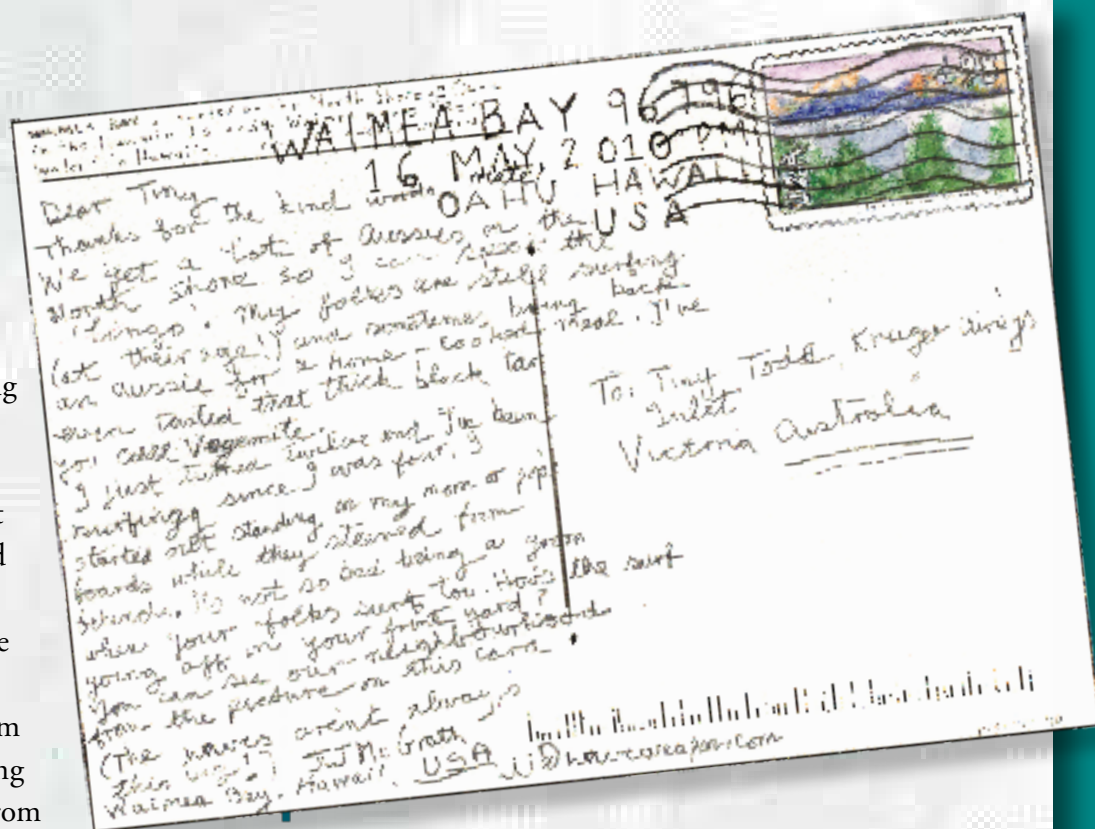 WAIMEA BAY 96796
16 MAY, 2010 PM
OAHU HAWAII
USA
Dear Tiny
Thanks for the kind words mate,
We get a lot of Aussies on the
North Shore so I can speak the
'lingo'. My folks are still surfing
(at their age!) and sometimes bring back
an Aussie for a home-cooked meal. I've
even tasted that thick black tar
you call Vegemite.
I just turned twelve and I've been
surfing since I was four. I
started out standing on my mom or pop's
boards while they steered from
behind. Its not so bad being a grom
when your folks surf too. How's the surf
going off in your front yard?
You can see our neighbourhood
from the picture on this card
(The waves aren't always
this big!) JJ McGrath
Waimea Bay, Hawaii. USA
To: Tiny Todd, Kruger Wings
Inlet
Victoria Australia
ing
t
d
e
m
ng
rom